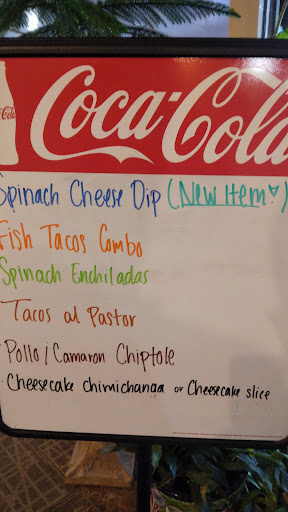 Coca-Cola
Spinach Cheese Dip (New Item♥)
Fish Tacos Combo
Spinach Enchiladas
Tacos al Pastor
Pollo / Camaron Chiptole
Cheesecake chimichanga or Cheesecake slice